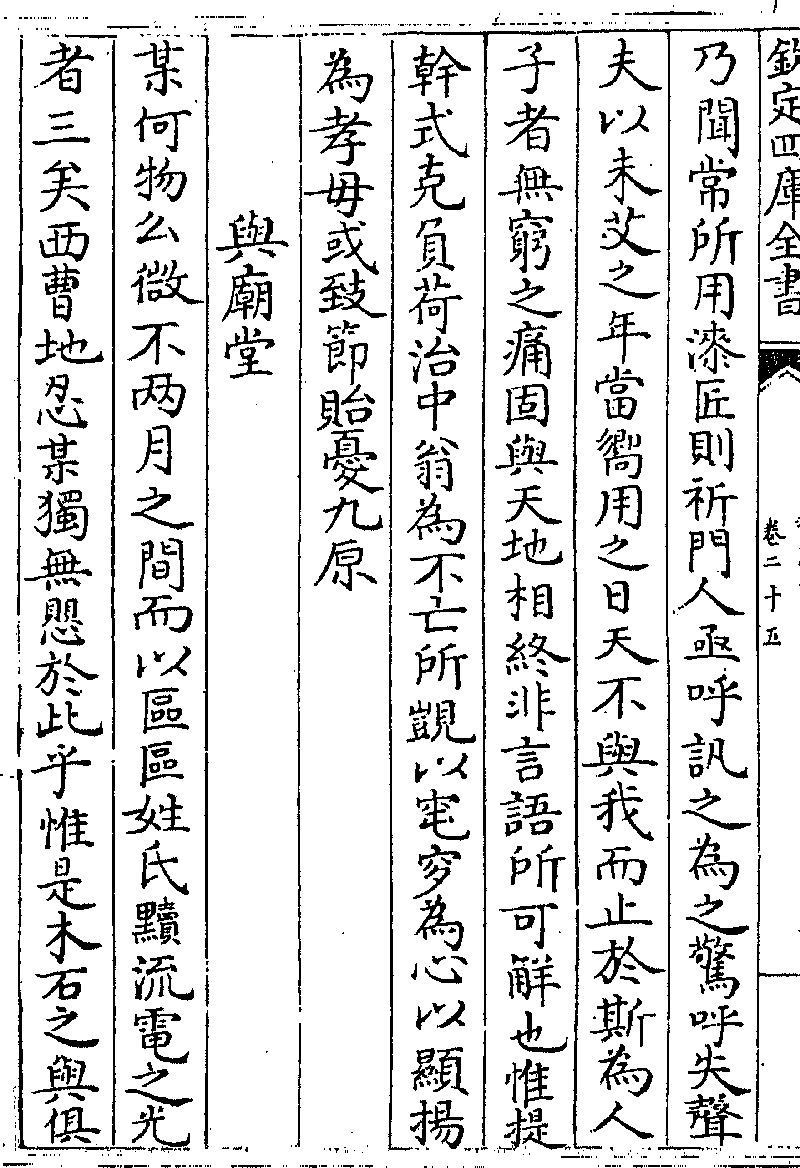 欽定四庫全書
卷二十五
乃聞常所用漆匠則祈門人亟呼訊之為之驚呼失聲
夫以未艾之年當嚮用之日天不與我而止於斯為人
子者無窮之痛固與天地相終非言語所可觧也惟提
幹式克負荷治中翁為不亡所覬以窀穸為心以顯揚
為孝毋或致節貽憂九原
與廟堂
某何物么微不两月之間而以區區姓氏黷流電之光
者三矣西曹地忍某獨無愳於此乎惟是木石之與俱